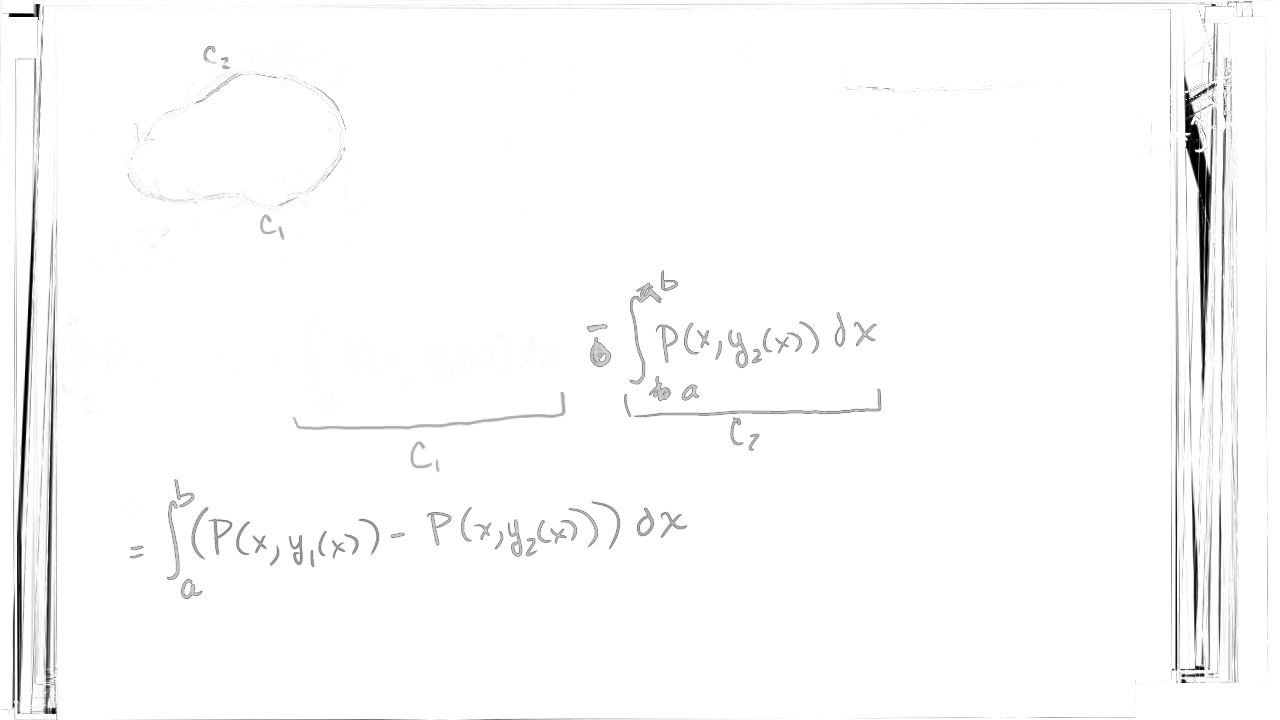 C₂
C₁
− ∫_a^b P(x, y₂(x)) dx
C₁ C₂
= ∫_a^b (P(x, y₁(x)) − P(x, y₂(x))) dx